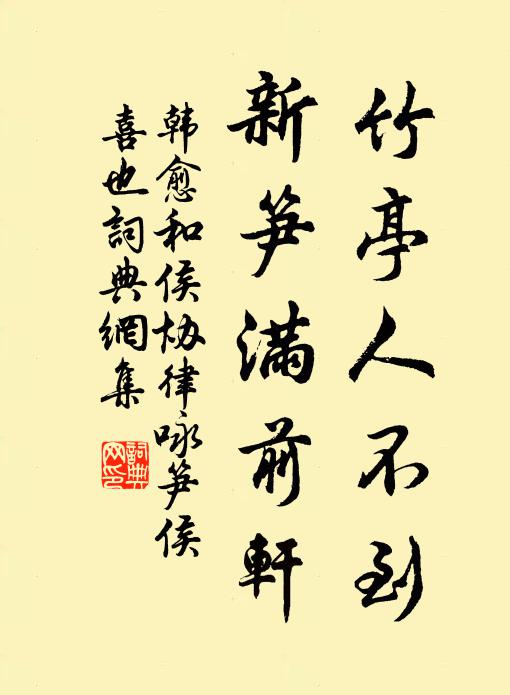 竹亭人不到
新笋满前軒
韩愈和侯协律咏笋侯
喜也詞典網集
詞典网印